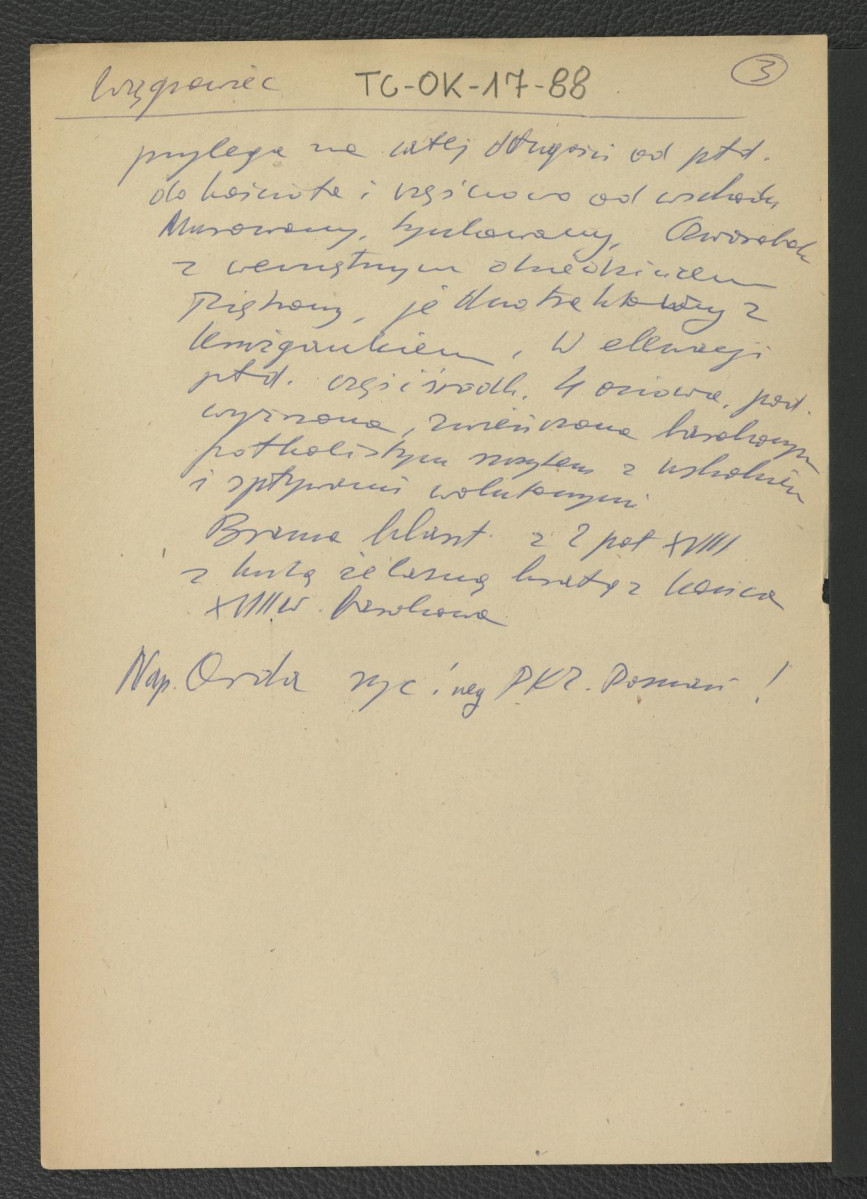 Wągrowiec TC-OK-17-88 3
przylega na całej długości od płd.
do kościoła i częściowo od wschodu
Murowany, tynkowany, Czworobok
z wewnętrznym dziedzińcem
Piętrowy, jednotraktowy z
krużgankiem, W elewacji
płd. część środk. 4 osiowa, pod.
wyższona, zwieńczona barokowym
półkolistym szczytem z uskokiem
i spływami wolutowymi
Brama klaszt. z 2 poł XVIII
z kutą żelazną kratą z końca
XVIII w. barokowa
Nap. Orda ryc i neg PKZ. Poznań !